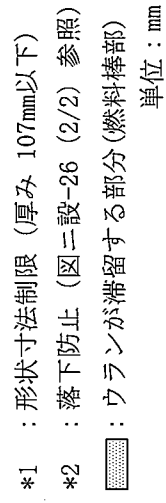 *1 ：形状寸法制限 (厚み 107mm以下)
*2 ：落下防止 (図ニ設-26 (2/2) 参照)
：ウランが滞留する部分(燃料棒部)
単位：mm